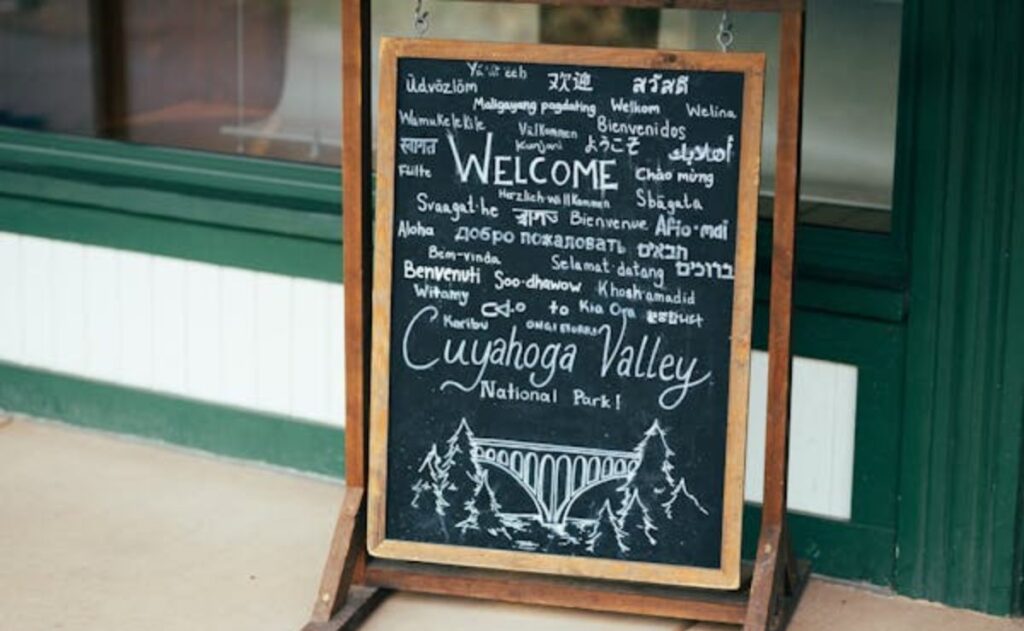 Üdvözlöm 欢迎 สวัสดี
Maligayang pagdating Welkom Welina
Wamukelekile Välkommen Bienvenidos
स्वागत Kunjani ようこそ أهلاً بك
Fáilte WELCOME Chào mừng
Herzlich willkommen Sbāgata
Svaagat he স্বাগত Bienvenue Afio mai
Aloha добро пожаловать הבאים
Bem-vinda Selamat datang ברוכים
Benvenuti Soo dhawow Khosh amadid
Witamy to Kia Ora
Karibu
Cuyahoga Valley
National Park!